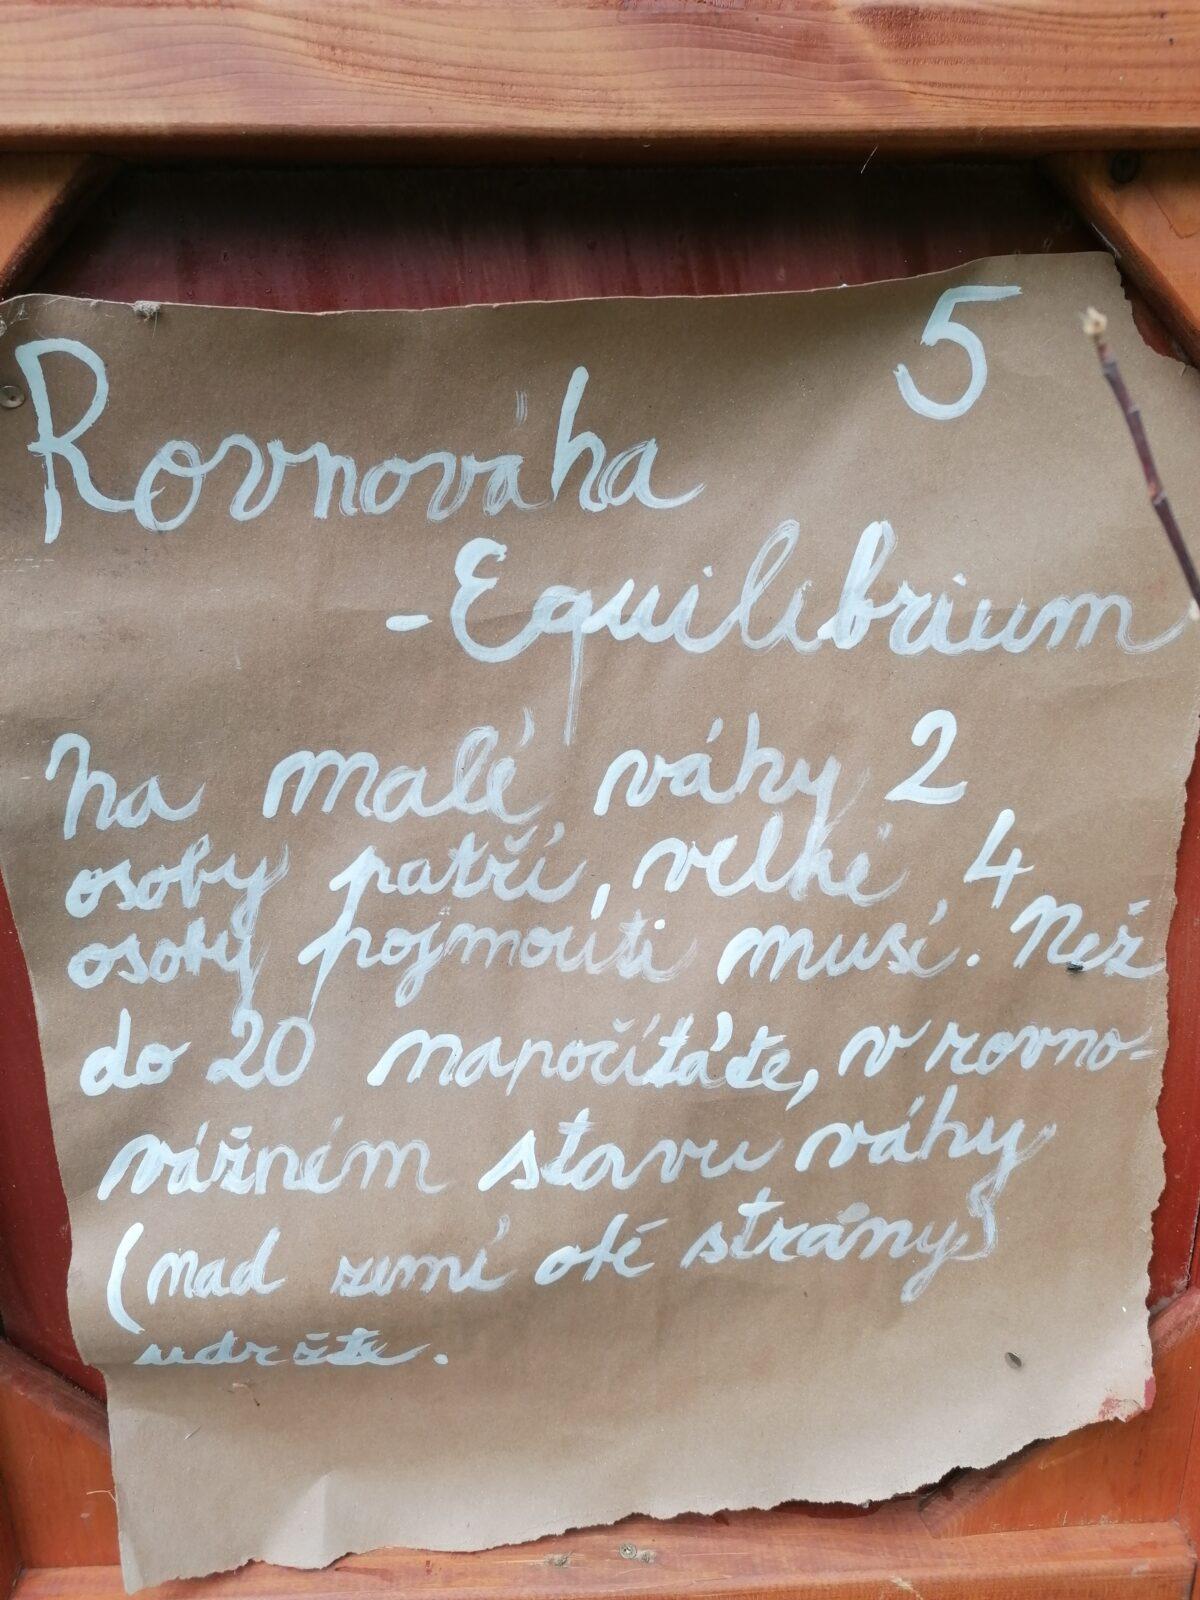 5
Rovnováha
- Equilibrium
Na malé váhy 2
osoby patří, velké 4
osoby pojmouti musí. Než
do 20 napočítáte, v rovno-
vážném stavu váhy
(nad zemí obě strany)
udržte.